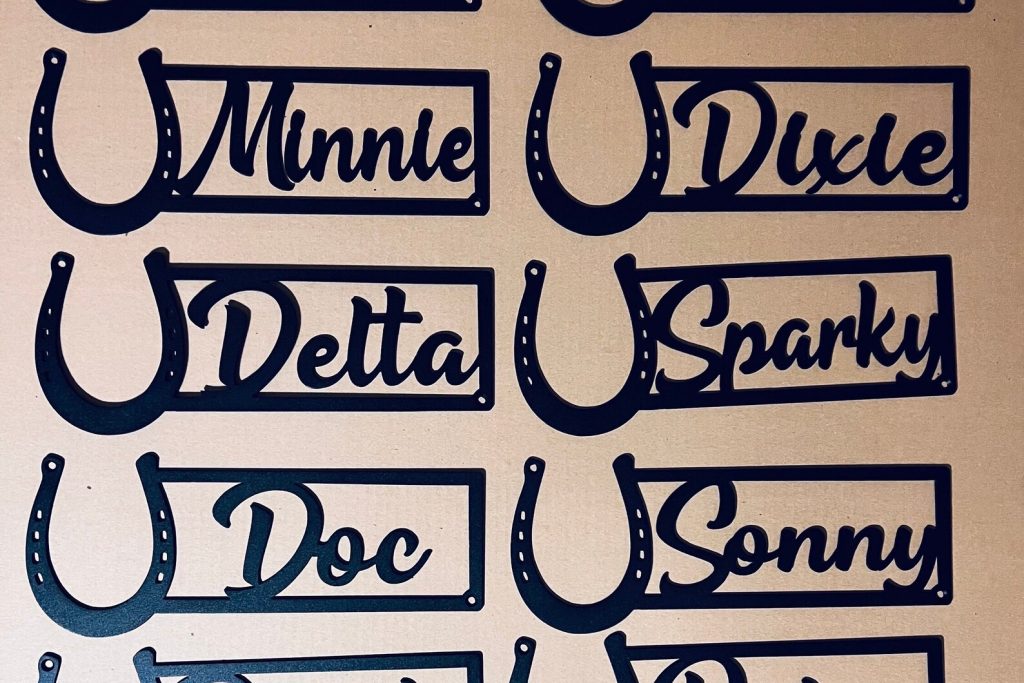 Minnie
Dixie
Delta
Sparky
Doc
Sonny